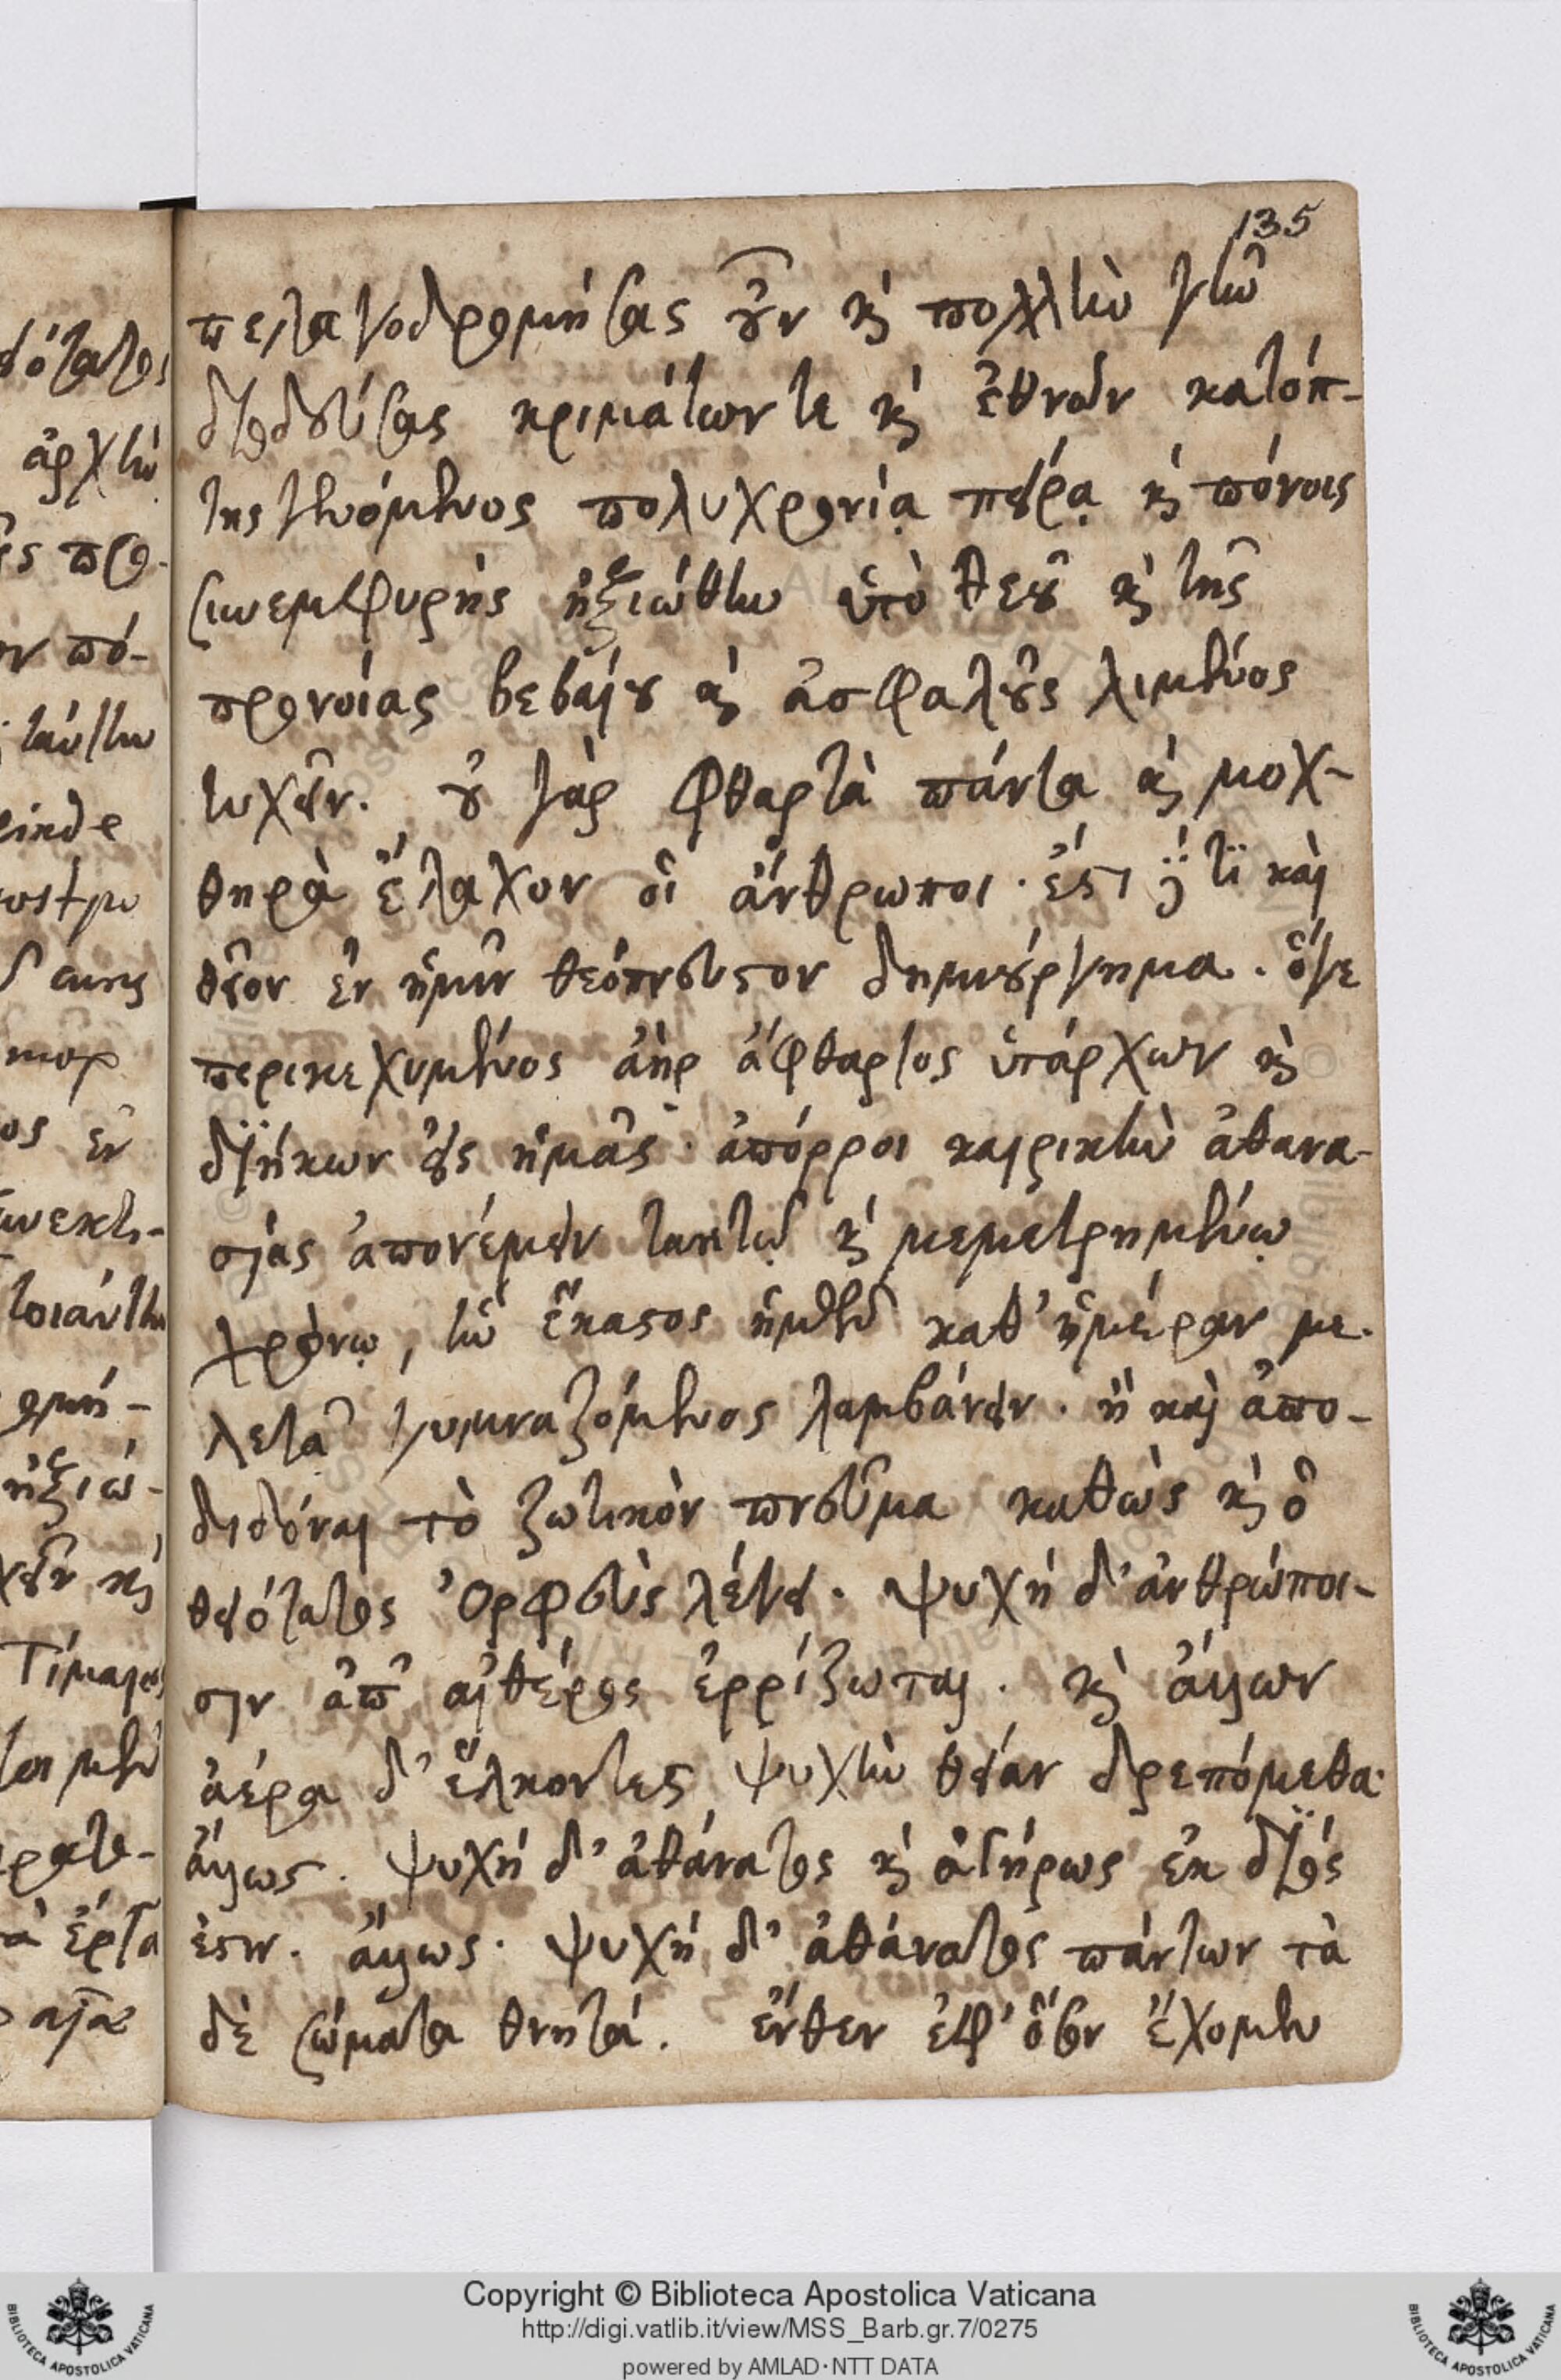 135
πελαγοδρομήσας οὖν καὶ πολλὴν γῆν
διοδεύσας κριμάτων τε καὶ ἐθνῶν κατόπ-
της γενόμενος πολυχρονίᾳ πείρᾳ καὶ πόνοις
συνεμφυρεὶς ἠξιώθην ὑπὸ θεοῦ καὶ τῆς
προνοίας βεβαίου καὶ ἀσφαλοῦς λιμένος
τυχεῖν. οὐ γὰρ φθαρτὰ πάντα καὶ μοχ-
θηρὰ ἔλαχον οἱ ἄνθρωποι. ἔστι δέ τι καὶ
θεῖον ἐν ἡμῖν θεόπνευστον δημιούργημα. ὅ γε
περικεχυμένος ἀὴρ ἄφθαρτος ὑπάρχων καὶ
διήκων εἰς ἡμᾶς. ἀπόρροι καιρικὴν ἀθανα-
σίας ἀπονέμειν τακτῷ καὶ μεμετρημένῳ
χρόνῳ, ἣν ἕκαστος ἡμῶν καθ' ἡμέραν με-
λετᾷ γυμναζόμενος λαμβάνειν. ἢ καὶ ἀπο-
διδόναι τὸ ζωτικὸν πνεῦμα καθὼς καὶ ὁ
θειότατος Ὀρφεὺς λέγει. ψυχὴ δ' ἀνθρώποι-
σιν ἀπ' αἰθέρος ἐρρίζωται. καὶ ἄλλων
ἀέρα δ' ἕλκοντες ψυχὴν θείαν δρεπόμεθα.
ἄλλως. ψυχὴ δ' ἀθάνατος καὶ ἀγήρως ἐκ διός
ἐστιν. ἄλλως. ψυχὴ δ' ἀθάνατος πάντων τὰ
δὲ σώματα θνητά. ἔνθεν ἐφ' ὅσον ἔχομεν
Copyright © Biblioteca Apostolica Vaticana
http://digi.vatlib.it/view/MSS_Barb.gr.7/0275
powered by AMLAD·NTT DATA
BIBLIOTECA APOSTOLICA VATICANA
BIBLIOTECA APOSTOLICA VATICANA